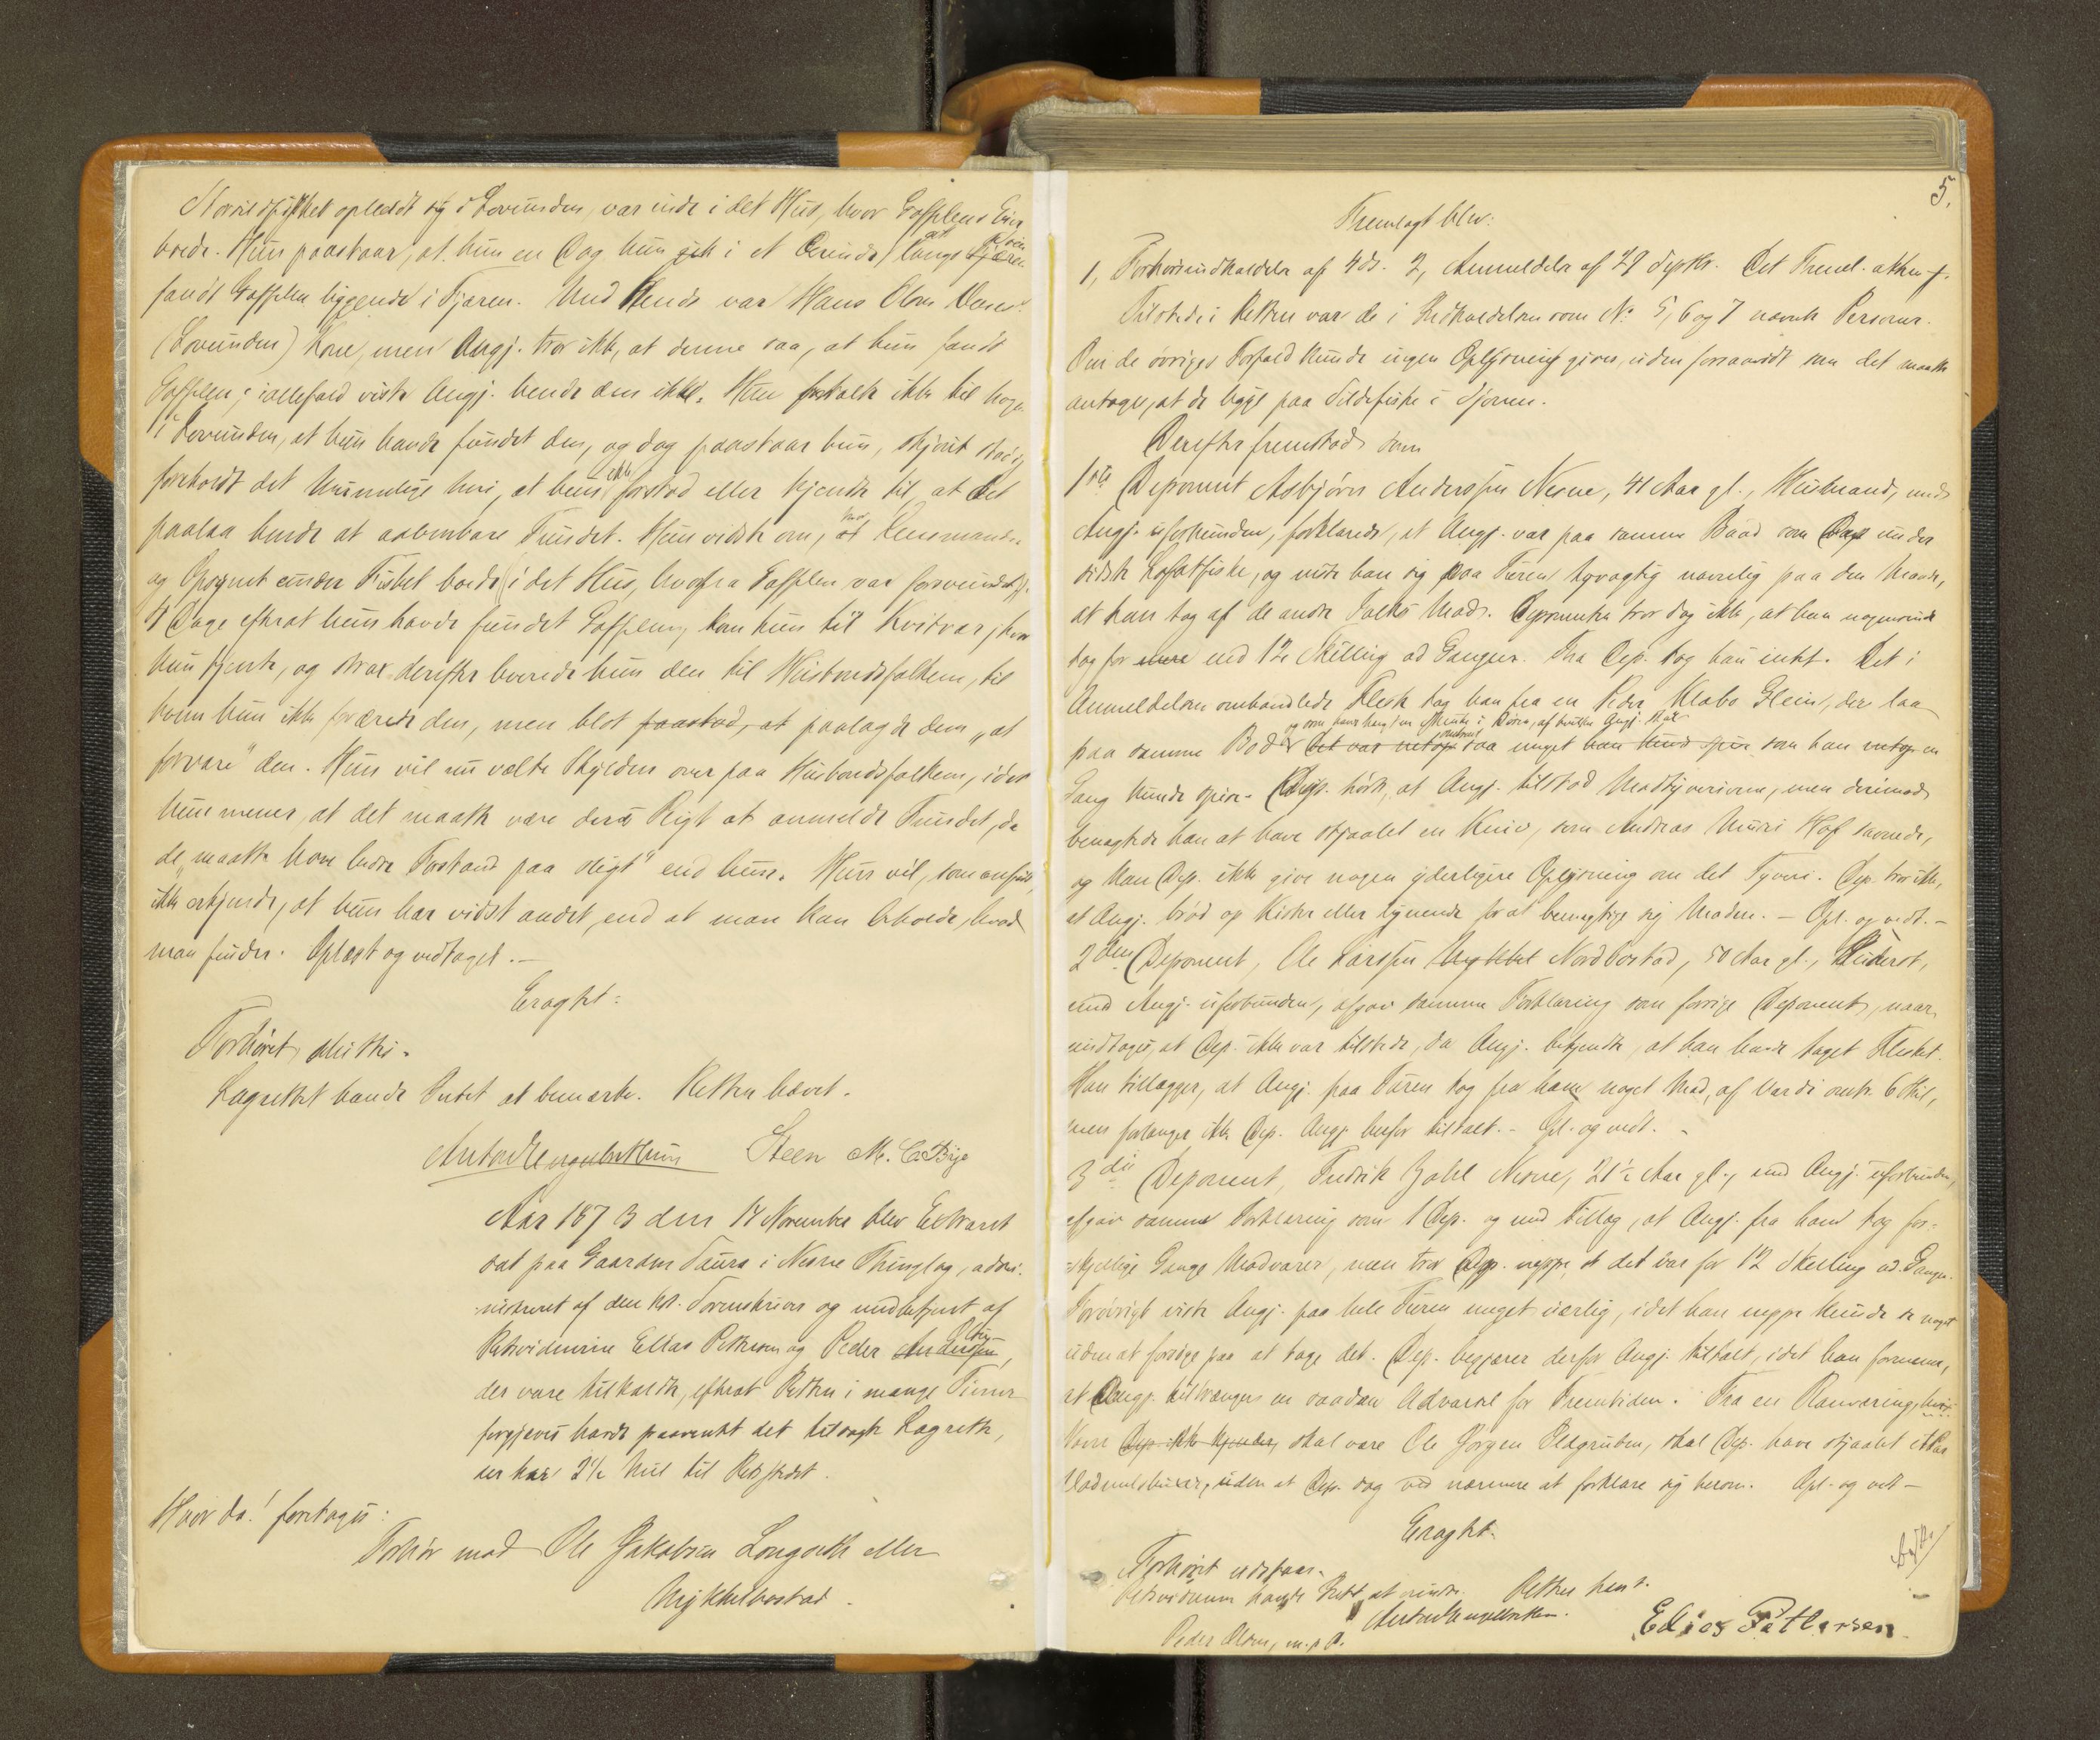 Norsildfisket opholdt sig i Lovunden, var inde i det Hus, hvor Gaffelens Eier
boede. Hun paastaar, at hun en Dag, hun gik i et Ærinde langs Fjæren
fandt Gaffelen liggende i Fjæren. Med Hende var Hans Olsen
(Lovunden) Kone, men Angj. tror ikke, at denne saa, at hun fandt
Gaffelen; iallefald viste Angj. hende den ikke. Hun fortalte ikke til nogen
i Lovunden, at hun havde fundet den, og dog paastaar hun, skjønt
foreholdt det Urimelige heri, at hun ikke forstod eller kjendte til, at det
paalaa hende at aabenbare Fundet. Hun vidste om, hvor Lensmanden
og Opsynet under Fisket boede (i det Hus, hvorfra Gaffelen var forsvundet).
4 Dage efterat hun havde fundet Gaffelen, kom hun til Kvitvar, hvor
hun tjente, og strax derefter leverede hun den til Husbondsfolkene, til
hvem hun ikke forærede den, men blot paastod, at paalagde dem "at
forvare" den. Hun vil nu vælte Skylden over paa Husbondsfolkene, idet
hun mener, at det maatte være deres Pligt at anmelde Fundet, da
de "maatte have bedre Forstand paa sligt" end hun. Hun vil, som anført,
ikke erkjende, at hun har vidst andet, end at man kan beholde, hvad
man finder. Oplæst og vedtaget.—
Eragtet:
Forhøret sluttes.
Lagrettet havde Intet at bemærke. Retten hævet.
Steen M. C. Bye
Aar 1873 den 14 November blev Extraret
sat paa Gaarden Saura i Nesne Thinglag, admi-
nistreret af den kst. Sorenskriver og medbetjent af
Retsvidnerne Elias Pettersen og Peder Andersen, Olsen
der vare tilkaldte, efterat Retten i mange Timer
forgjæves havde paaventet det tilsagte Lagrette,
der har 2½ Mil til Retsstedet.
Hvor da! foretoges:
Forhør mod Ole Jakobsen Longseth eller
Mykkelbostad.
5.
Fremlagt blev:
1, Forhørsindkaldelse af 4 ds. 2, Anmeldelse af 29 Septbr. Det Freml. akter-f.
Tilstede i Retten var de i Indkaldelsen som No 5, 6 og 7 nævnte Personer.
Om de øvriges Forfald kunde ingen Oplysning gives, uden forsaavidt som det maatte
antages, at de ligge paa Sildefiske i Sjøen.
Derefter fremstod som
1ste Deponent Asbjørn Anderssen Nesne, 41 Aar gl., Husmand, med
Angj. uforbunden, forklarede, at Angj. var paa samme Baad som Dep. under
sidste Lofotfiske, og viste han sig paa Turen tyvagtig navnlig paa den Maade,
at han tog af de andre Folks Mad. Deponenten tror dog ikke, at han nogensinde
tog for mere end 12 Skilling ad Gangen. Fra Dep. tog han intet. Det i
Anmeldelsen omhandlede Flesk tog han fra en Peder Klabo Glein, der laa
og som
paa samme Bod Det var netop saa meget han kunde spise som han netop en
Gang kunde spise. Dep. hørte, at Angj. tilstod Madtyverierne, men derimod
benægtede han at have stjaalet en Kniv, som Andreas savnede,
og kan Dep. ikke give nogen yderligere Oplysning om det Tyveri. Dep. tror ikke,
at Angj. brød op Kister eller lignende for at bemægtige sig Maden.— Opl. og vedt.—
2den Deponent, Ole Larssen Nordbostad, 50 Aar gl.,
med Angj. uforbunden, afgav samme Forklaring som forrige Deponent, naar
undtages, at Dep. ikke var tilstede, da Angj. bekjendte, at han havde taget Flesket.
Han tillægger, at Angj. paa Turen tog fra ham noget Mad, af Værdi omtr. 6 Skil,
men forlanger ikke Dep. Angj. herfor tiltalt.— Opl. og vedt.—
3die Deponent, Fredrik Zahl Nesne, 21½ Aar gl., med Angj. uforbunden,
afgav samme Forklaring som 1 Dep. og med Tillæg, at Angj. fra ham tog for-
skjellige Gange Madvarer, men tror Dep. neppe at det var for 12 Skilling ad Gangen.
Forøvrigt viste Angj. paa hele Turen meget uærlig, idet han neppe kunde se noget
uden at forsøge paa at tage det. Dep. begjærer derfor Angj. tiltalt, idet han formener,
at Angj. tiltrænger en saadan Advarsel for Fremtiden. Fra en Ranværing, hvis
Navn Dep. ikke kjender, skal være Ole Jørgen Oldgruben, skal Dep. have stjaalet et Par
Vadmelsbuxer, uden at Dep. dog ved nærmere at forklare sig herom. Opl. og vedt—
Eragtet.
Forhøret udstaar.
Retsvidnerne havde Intet at erindre. Retten hævet.
Peder Olsen, m. p. P.
Elias Pettersen